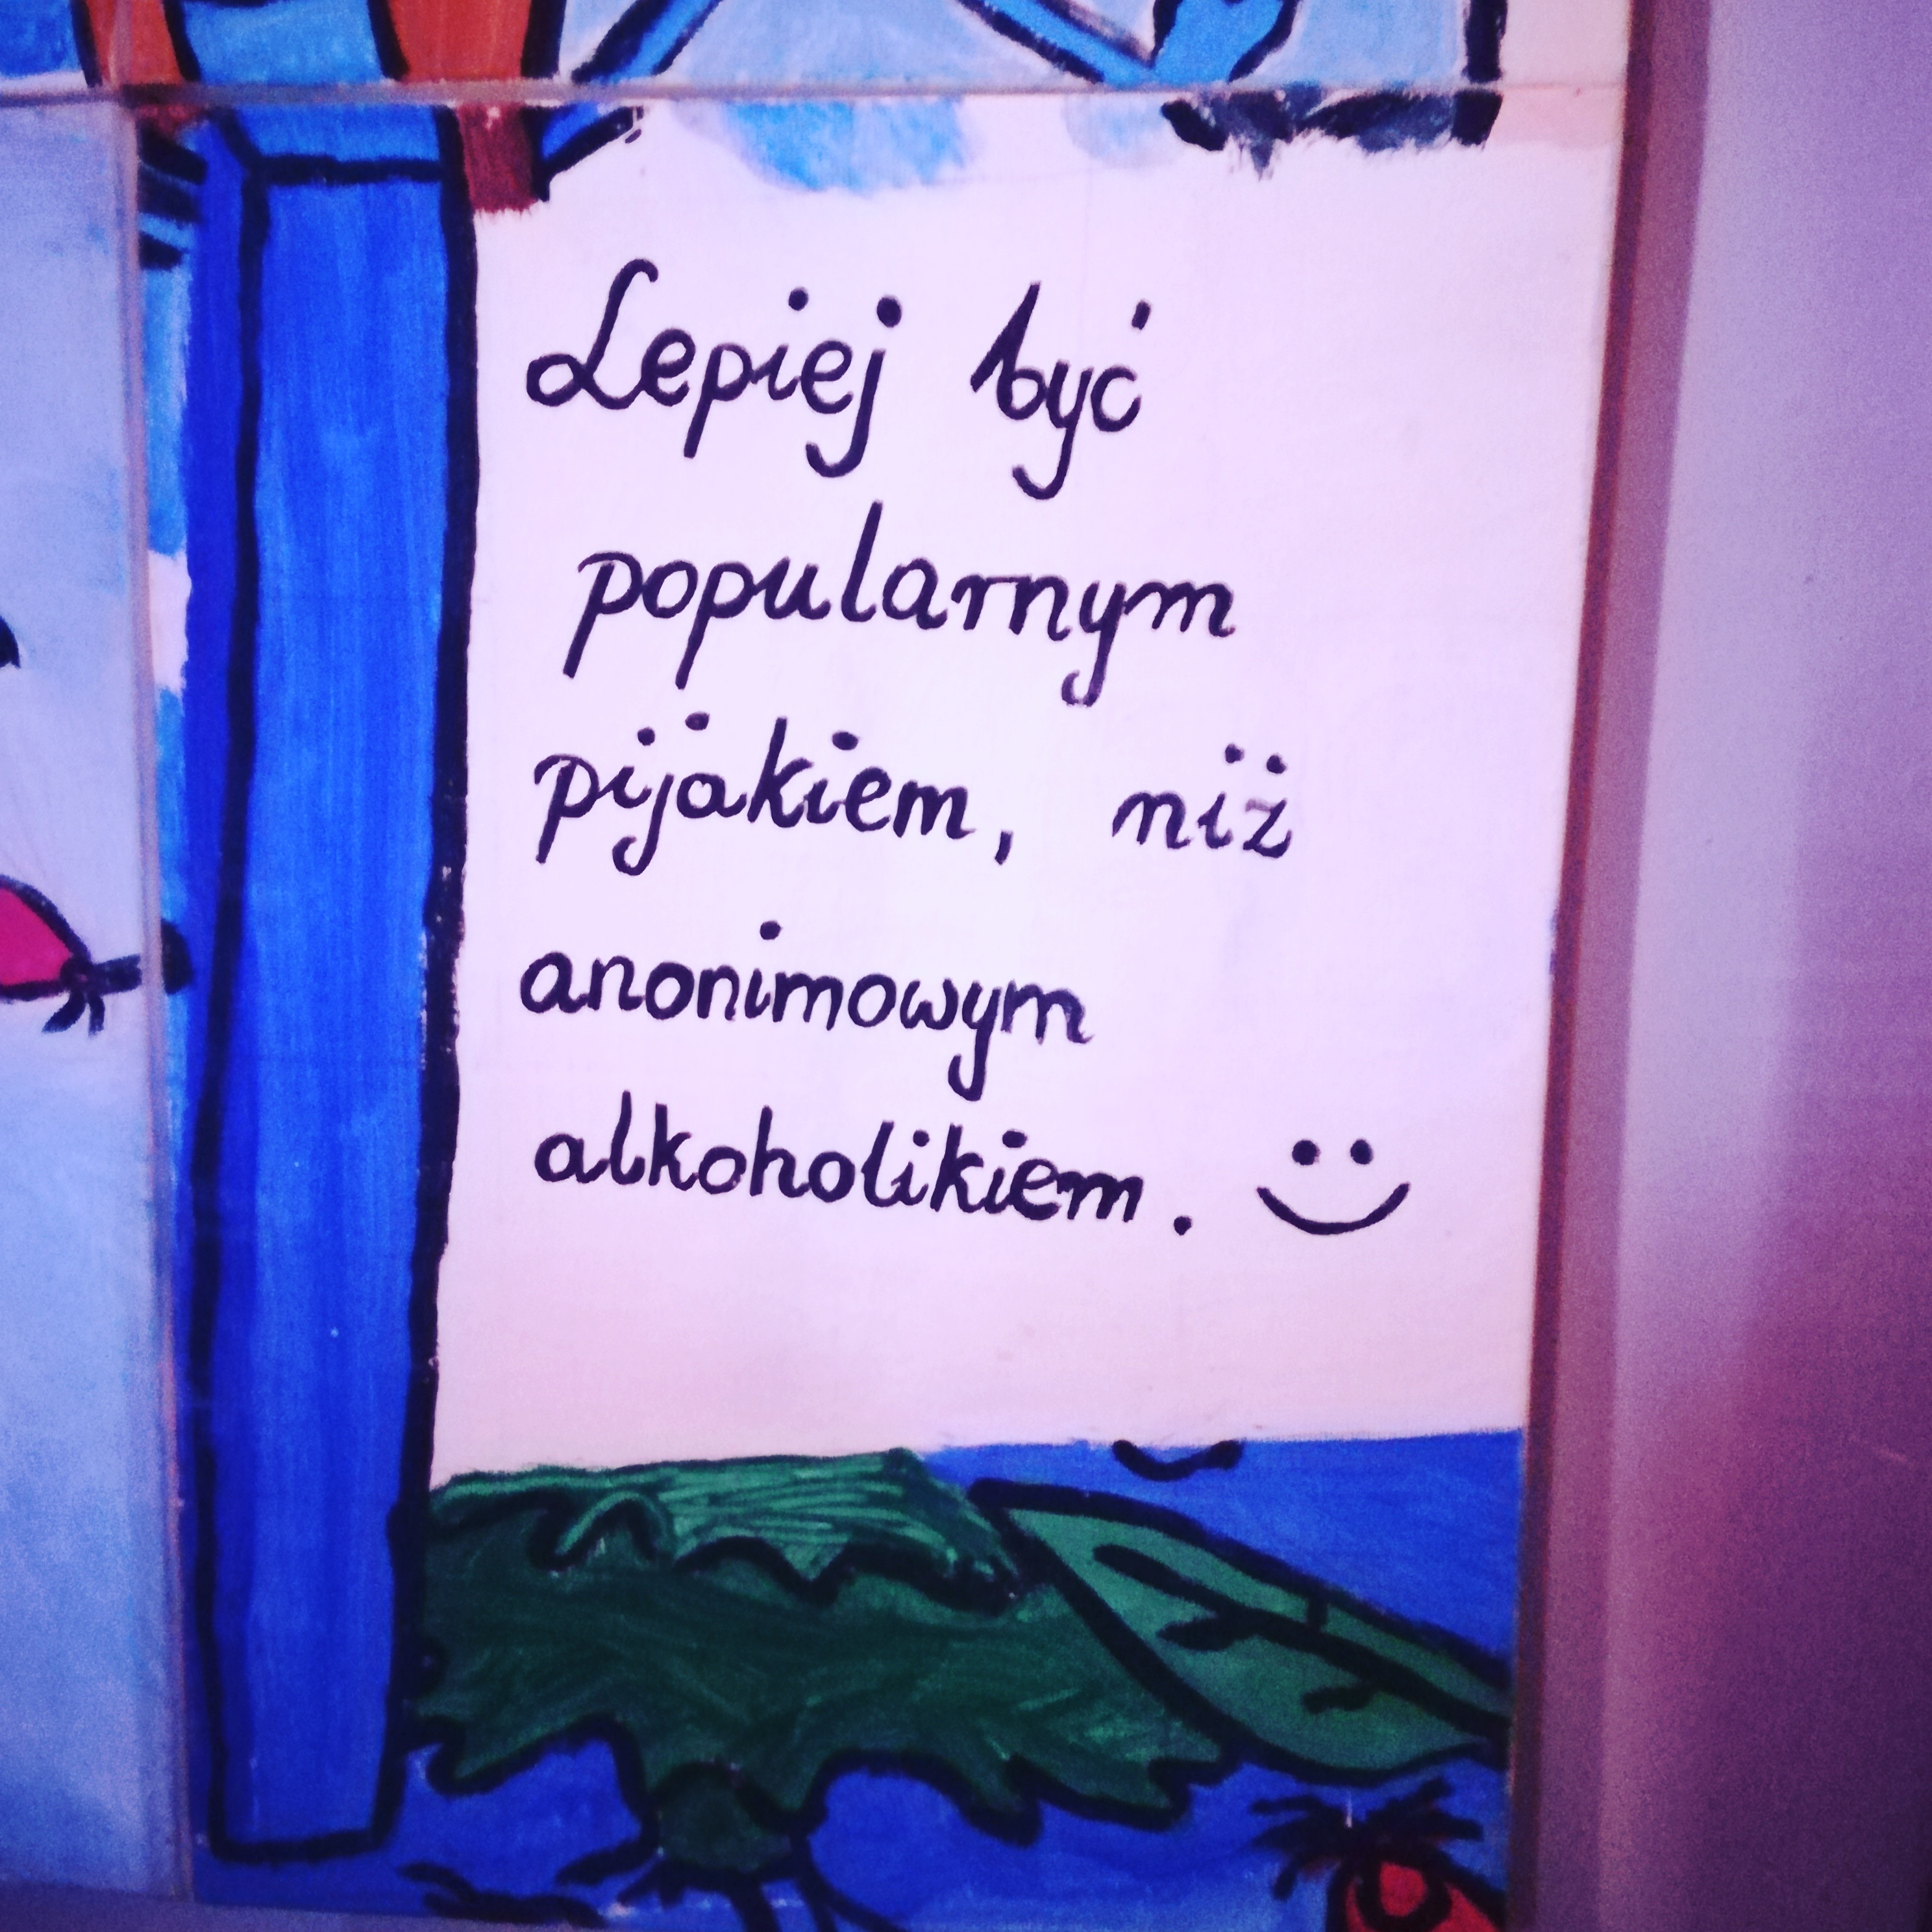 Lepiej być
popularnym
pijakiem, niż
anonimowym
alkoholikiem. :)